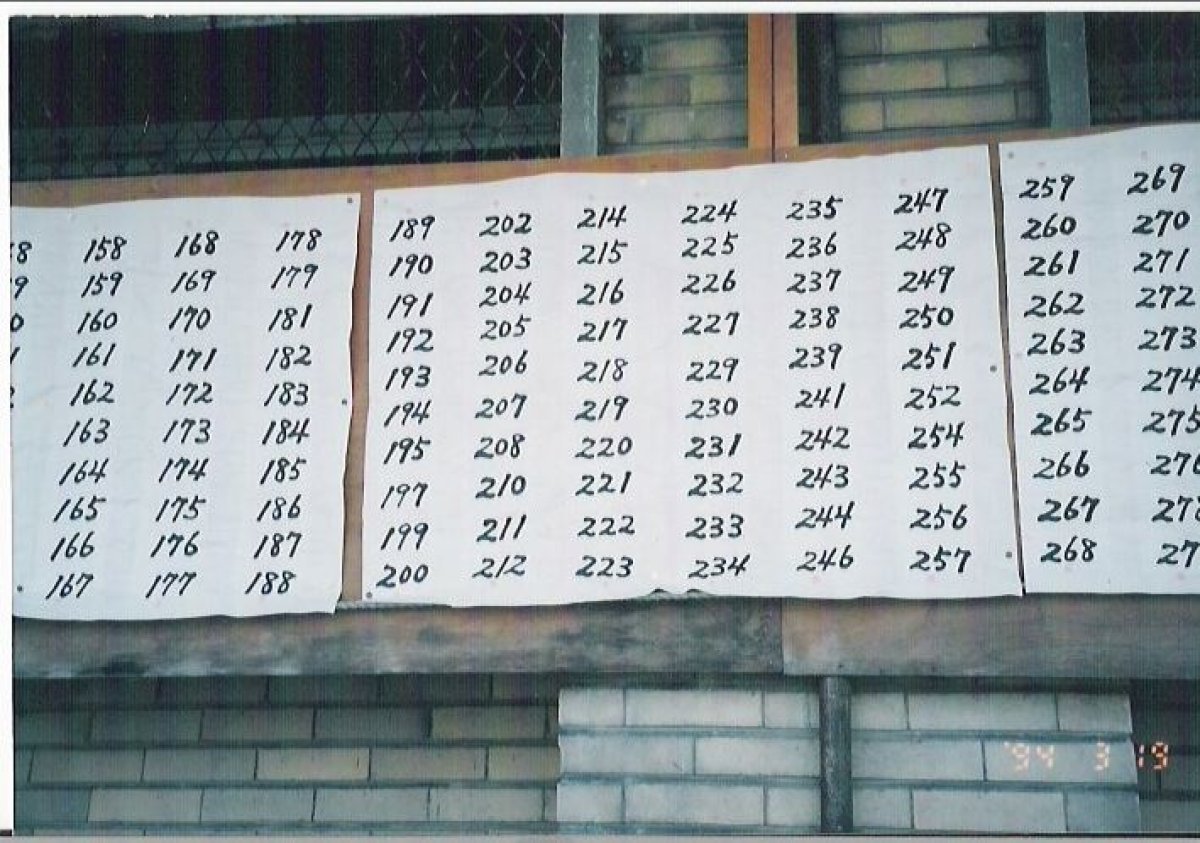 158 168 178 189 202 214 224 235 247 259 269
159 169 179 190 203 215 225 236 248 260 270
160 170 181 191 204 216 226 237 249 261 271
161 171 182 192 205 217 227 238 250 262 272
162 172 183 193 206 218 229 239 251 263 273
163 173 184 194 207 219 230 241 252 264 274
164 174 185 195 208 220 231 242 254 265 275
165 175 186 197 210 221 232 243 255 266
166 176 187 199 211 222 233 244 256 267
167 177 188 200 212 223 234 246 257 268
'94 3 19